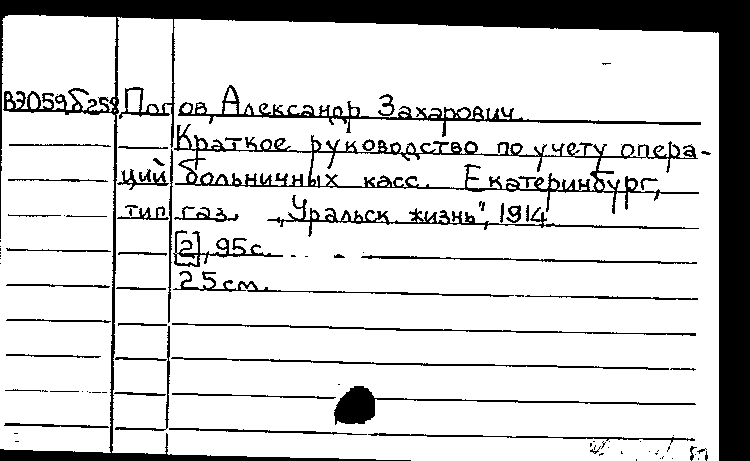 ВЭ059Б258 Попов, Александр Захарович.
Краткое руководство по учету опера-
ций больничных касс. Екатеринбург,
тип. газ. „Уральск. жизнь", 1914.
[2], 95с.
25см.